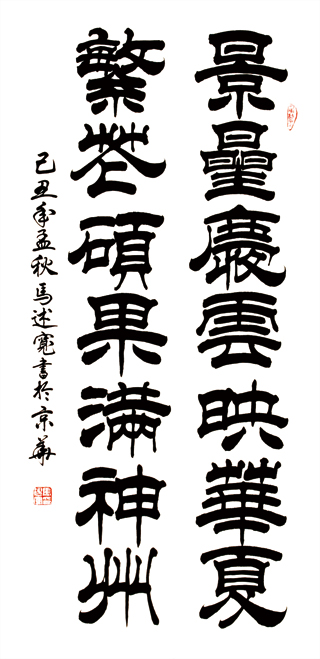 景星慶雲映華夏
繁花碩果滿神州
己丑年孟秋馬述寬書於京華